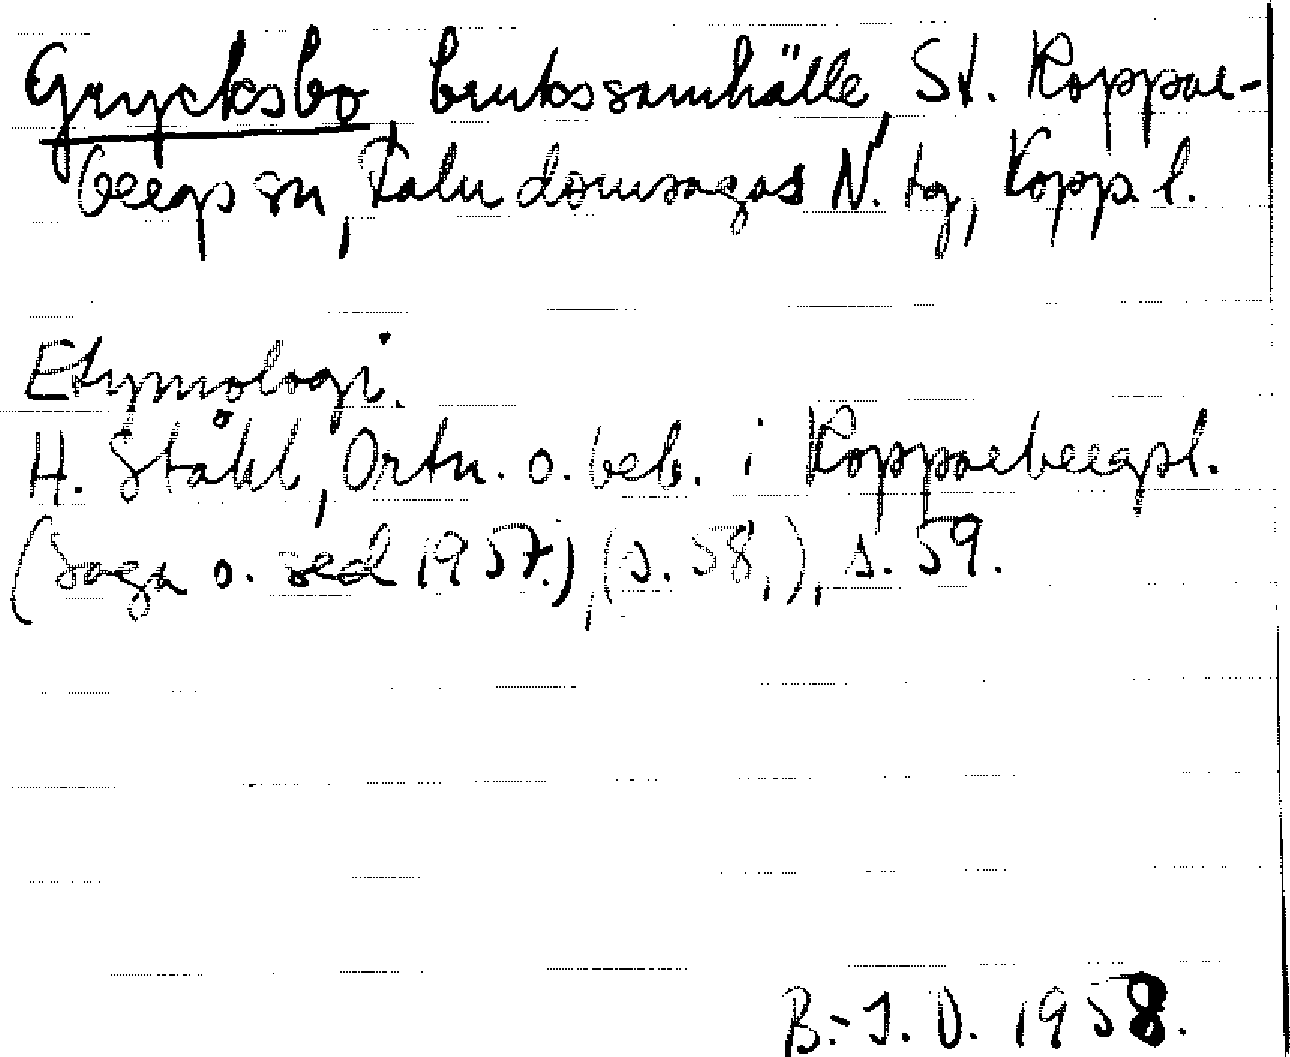 Grycksbo, brukssamhälle, St. Koppar-
bergs sn, Falu domsagas N. tg, Kopp. l.
Etymologi.
H. Ståhl, Ortn. o. beb. i Kopparbergsl.
(Saga o. sed 1957.), (s. 58,), s. 59.
B.-J. O. 1958.